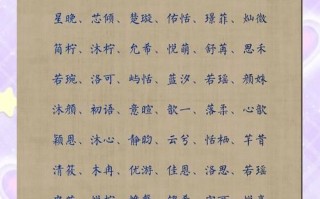 星晚、芯倾、楚璇、佑恬、璟菲、灿微
简柠、沐柠、允希、悦萌、舒苒、思禾
若琬、洛可、屿恬、蓝汐、若瑶、颜姝
沐颜、初语、意暄、歆一、落柔、心歆
颖恩、沐心、静昀、云兮、恬栖、芊昔
清莜、木冉、优游、佳恩、洛思、若瑶